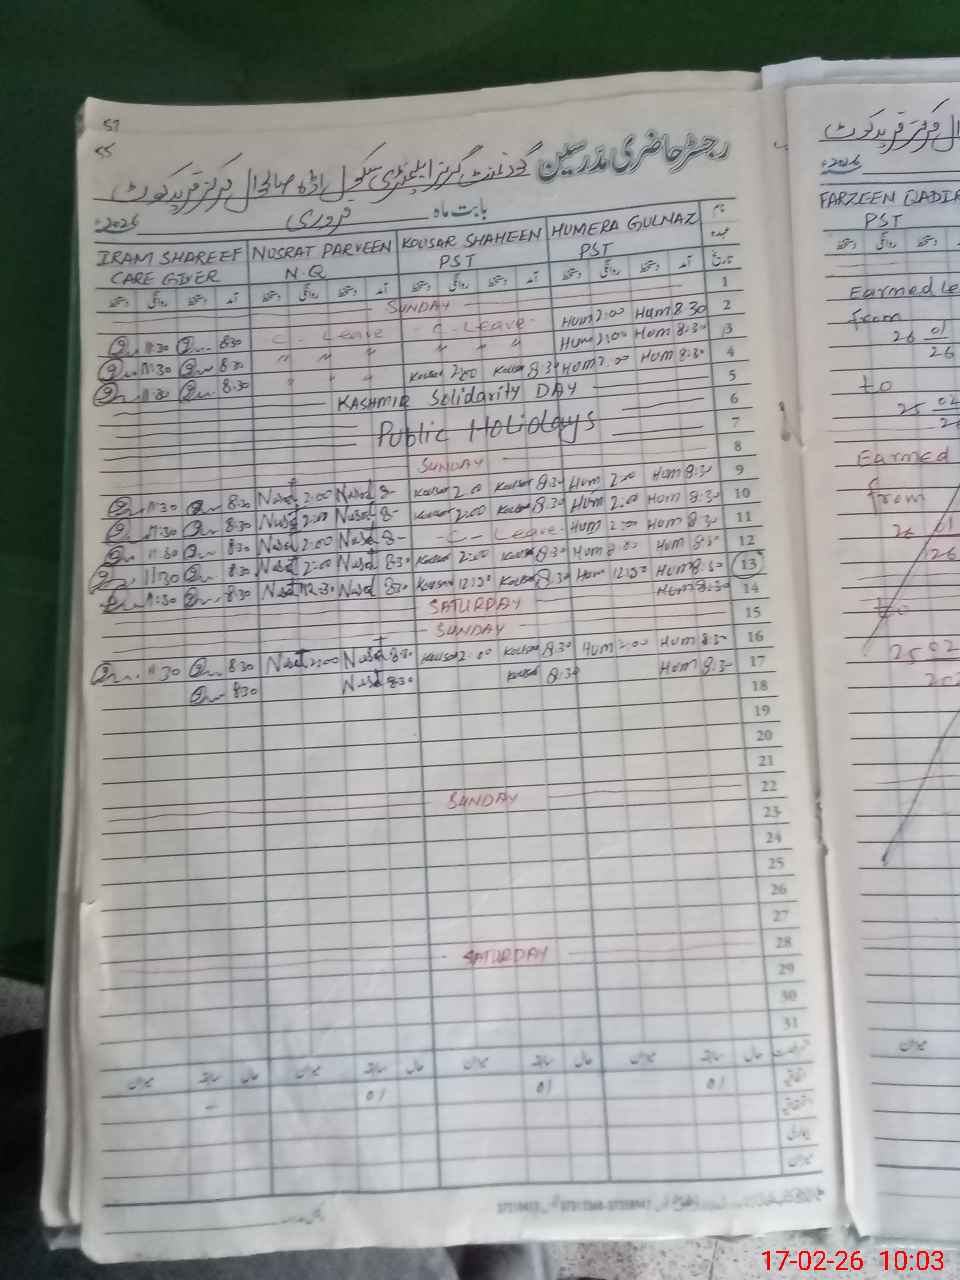 57
55
رجسٹر حاضری مدرسین گورنمنٹ گرلز ایلیمنٹری سکول اڈہ صالحوال مرکز فرید کوٹ
بابت ماہ فروری 2026ء
IRAM SHAREEF NUSRAT PARVEEN KOUSAR SHAHEEN HUMERA GULNAZ نام
CARE GIVER N.Q PST PST عہدہ
دستخط روانگی دستخط آمد دستخط روانگی دستخط آمد دستخط روانگی دستخط آمد دستخط روانگی دستخط آمد تاریخ
SUNDAY 1
11:30 8:30 C - Leave - C - Leave - Hum 2:00 Hum 8:30 2
11:30 8:30 " " " " " " Hum 2:00 Hum 8:30 3
11:30 8:30 " " " Kousar 2:00 Kousar 8:30 Hum 2:00 Hum 8:30 4
KASHMIR Solidarity DAY 5
Public Holidays 6
7
SUNDAY 8
11:30 8:30 Nusrat 2:00 Nusrat 8- Kousar 2:00 Kousar 8:30 Hum 2:00 Hum 8:30 9
11:30 8:30 Nusrat 2:00 Nusrat 8- Kousar 2:00 Kousar 8:30 Hum 2:00 Hum 8:30 10
11:30 8:30 Nusrat 2:00 Nusrat 8- - C - Leave - Hum 2:00 Hum 8:30 11
11:30 8:30 Nusrat 2:00 Nusrat 8:30 Kousar 2:00 Kousar 8:30 Hum 2:00 Hum 8:30 12
11:30 8:30 Nusrat 12:30 Nusrat 8:30 Kousar 12:30 Kousar 8:30 Hum 12:30 Hum 8:30 13
SATURDAY Hum 8:30 14
SUNDAY 15
11:30 8:30 Nusrat 2:00 Nusrat 8:30 Kousar 2:00 Kousar 8:30 Hum 2:00 Hum 8:30 16
8:30 Nusrat 8:30 Kousar 8:30 Hum 8:30 17
18
19
20
21
SUNDAY 22
23
24
25
26
27
SATURDAY 28
29
30
31
میزان سابقہ حال میزان سابقہ حال میزان سابقہ حال میزان سابقہ حال
- 01 01 01
مرکز فرید کوٹ
2026ء
FARZEEN QADIR
PST
دستخط روانگی دستخط
Earned Le
from
26 01
26
to
25 02
26
Earned
from
26 01
26
to
25 02
202
میزان
17-02-26 10:03